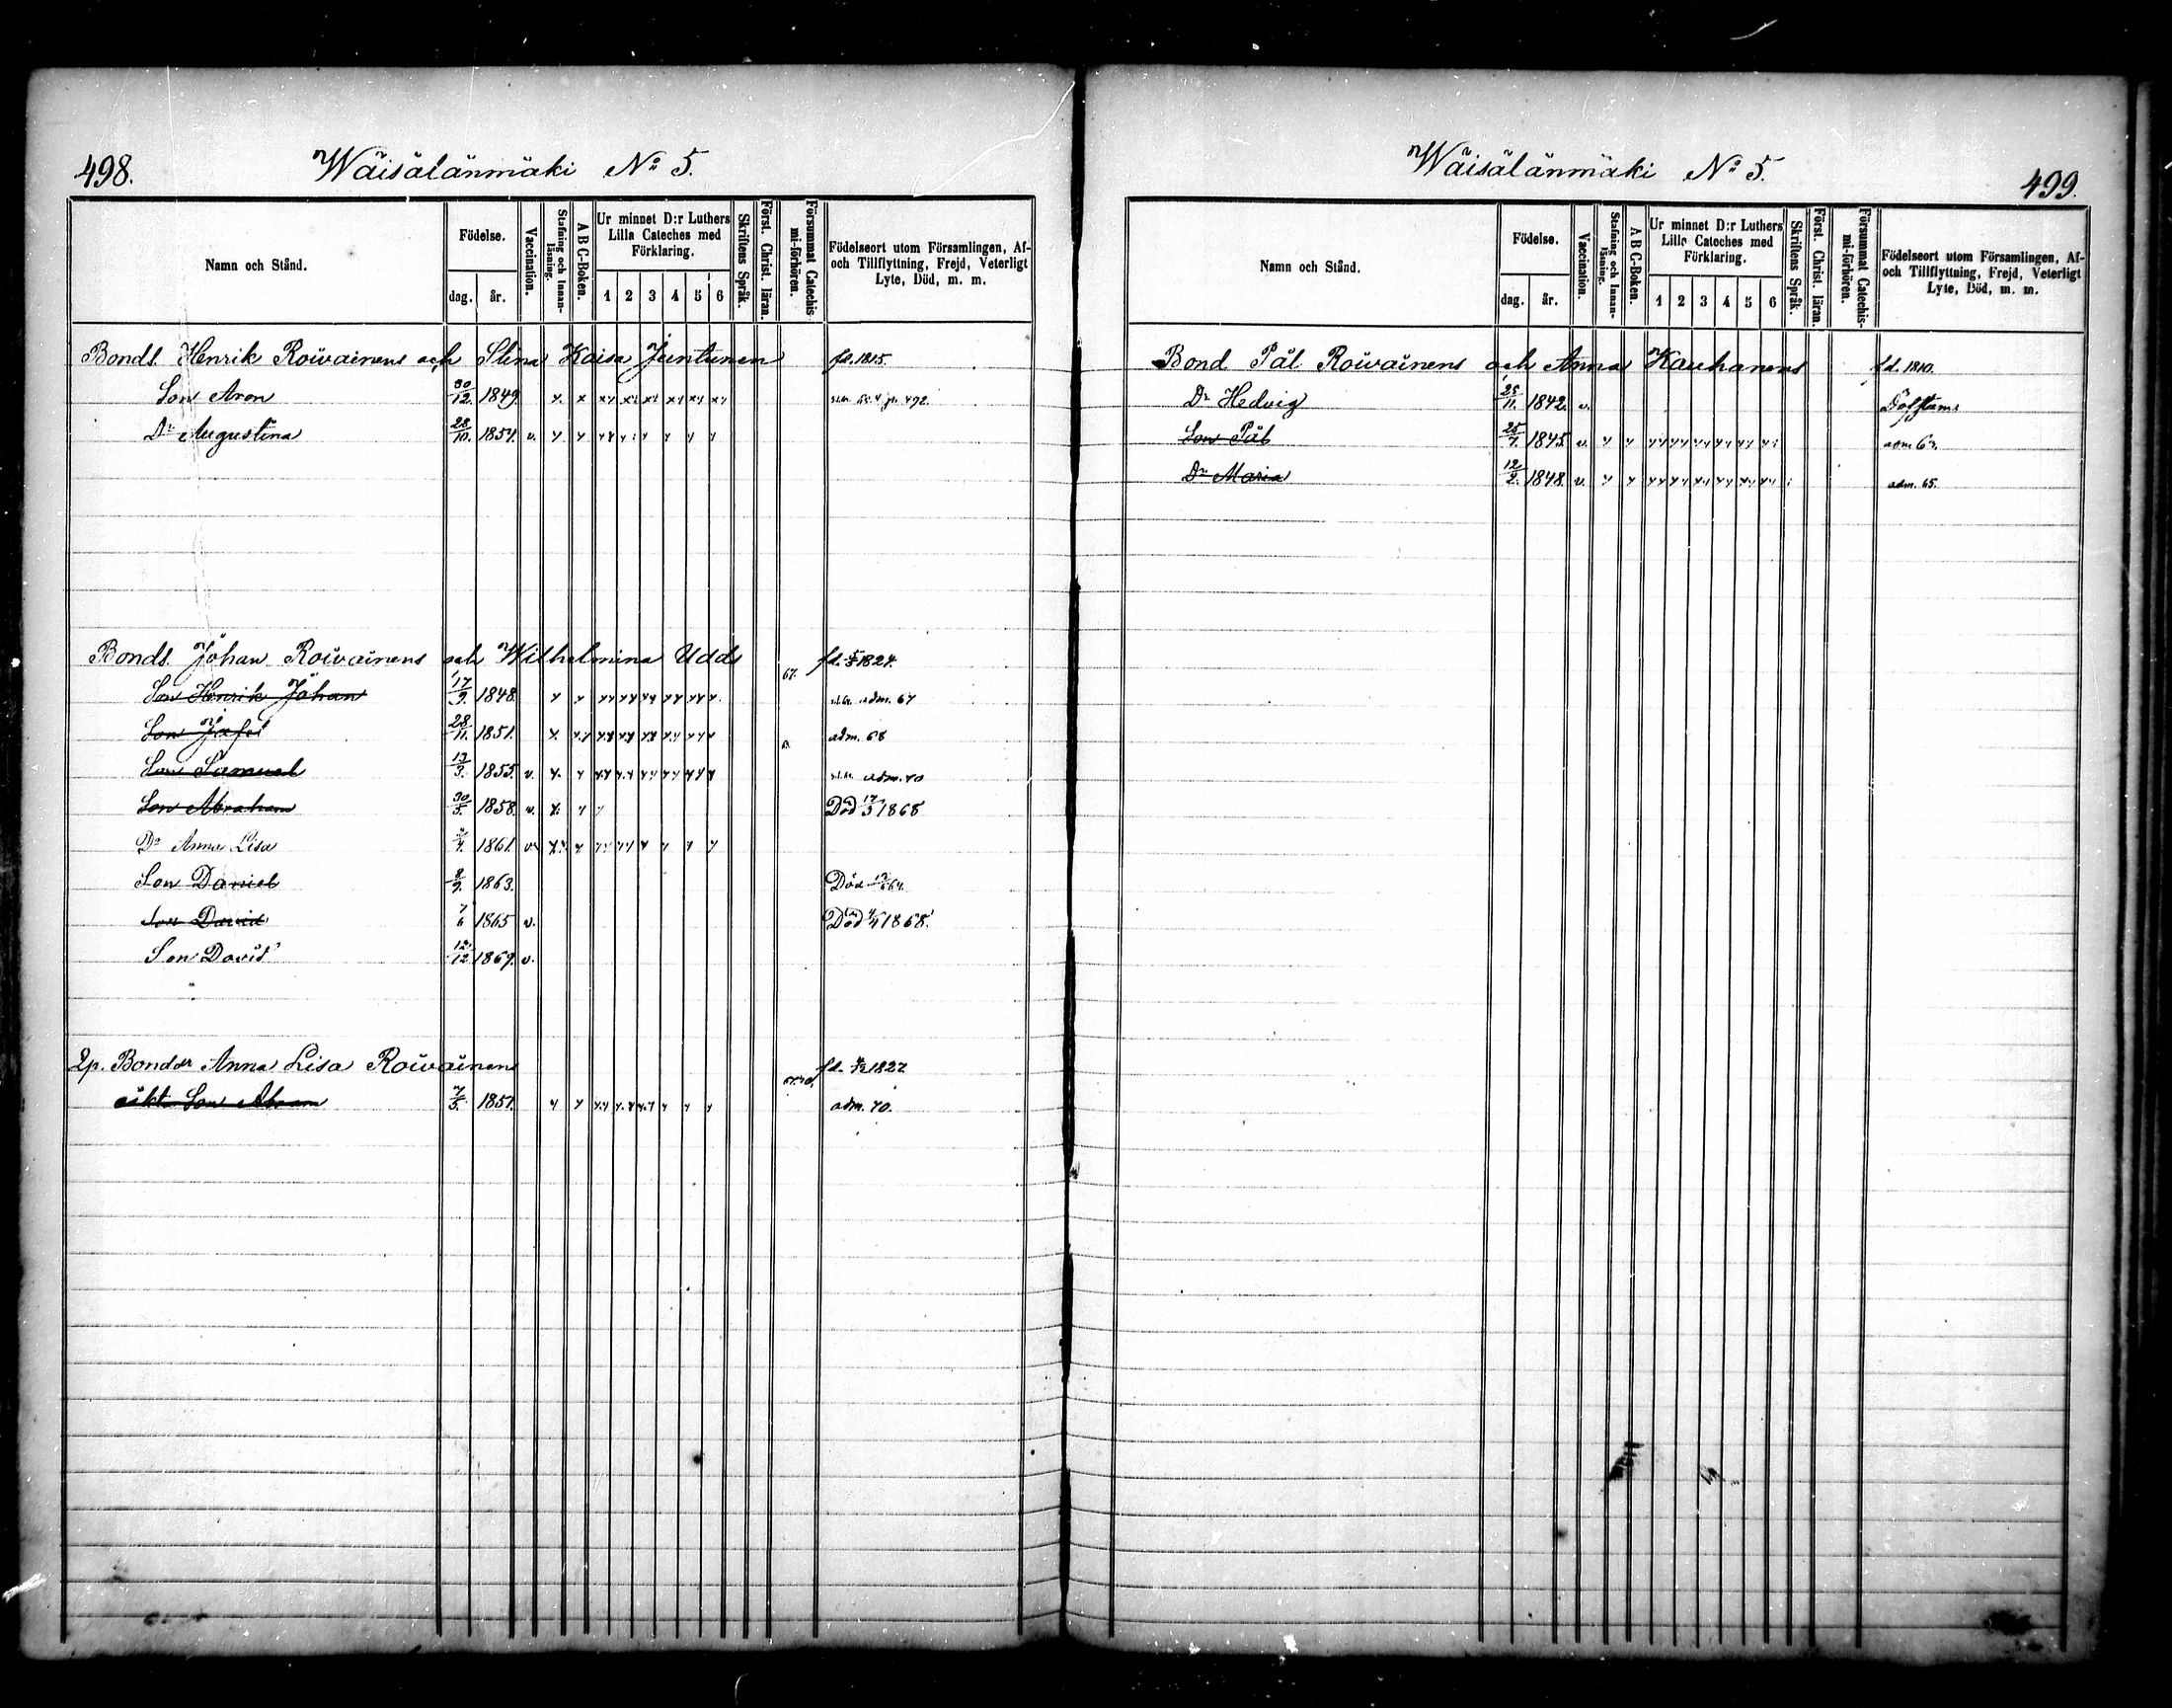 498.
Wäisälänmäki No 5.
Namn och Stånd.
Födelse.
dag. år.
Vaccination.
Stafning och Innan-läsning.
A B C-Boken.
Ur minnet D:r Luthers
Lilla Cateches med
Förklaring.
1 2 3 4 5 6
Skriftens Språk.
Först. Christ. läran.
Försummat Catechis-mi-förhören.
Födelseort utom Församlingen, Af-
och Tillflyttning, Frejd, Veterligt
Lyte, Död, m. m.
Bonds. Henrik Roivainens och Stina Kaisa Juntunen fd. 1815.
Son Aron 30/12. 1849 492.
Dr Augustina 28/10. 1854. v.
Bonds. Johan Roivainens och Wilhelmina Udds 67. fd. 1824
Son Henrik Johan 17/9. 1848. adm. 67
Son Josef 28/11. 1851. adm. 68
Son Samuel 13/3. 1855. v. adm. 70
Son Abraham 30/5. 1858. v. Död 17/5 1868
Dr Anna Lisa 1861. v.
Son Daniel 8/9. 1863. Död 64.
Son David 7/6 1865 v. Död 1868.
Son David 12/12 1869. v.
Bonddr Anna Lisa Roivainens fd. 1822
oäkt. Son Abram 7/5. 1851. adm. 70.
499.
Wäisälänmäki No 5.
Namn och Stånd.
Födelse.
dag. år.
Vaccination.
Stafning och Innan-läsning.
A B C-Boken.
Ur minnet D:r Luthers
Lilla Cateches med
Förklaring.
1 2 3 4 5 6
Skriftens Språk.
Först. Christ. läran.
Försummat Catechis-mi-förhören.
Födelseort utom Församlingen, Af-
och Tillflyttning, Frejd, Veterligt
Lyte, Död, m. m.
Bond Pål Roivainens och Anna Kauhanens fd. 1810.
Dr Hedvig 25/11. 1842. v. Döfstum
Son Pål 25/7. 1845. v. adm 63.
Dr Maria 12/2. 1848. v. adm. 65.